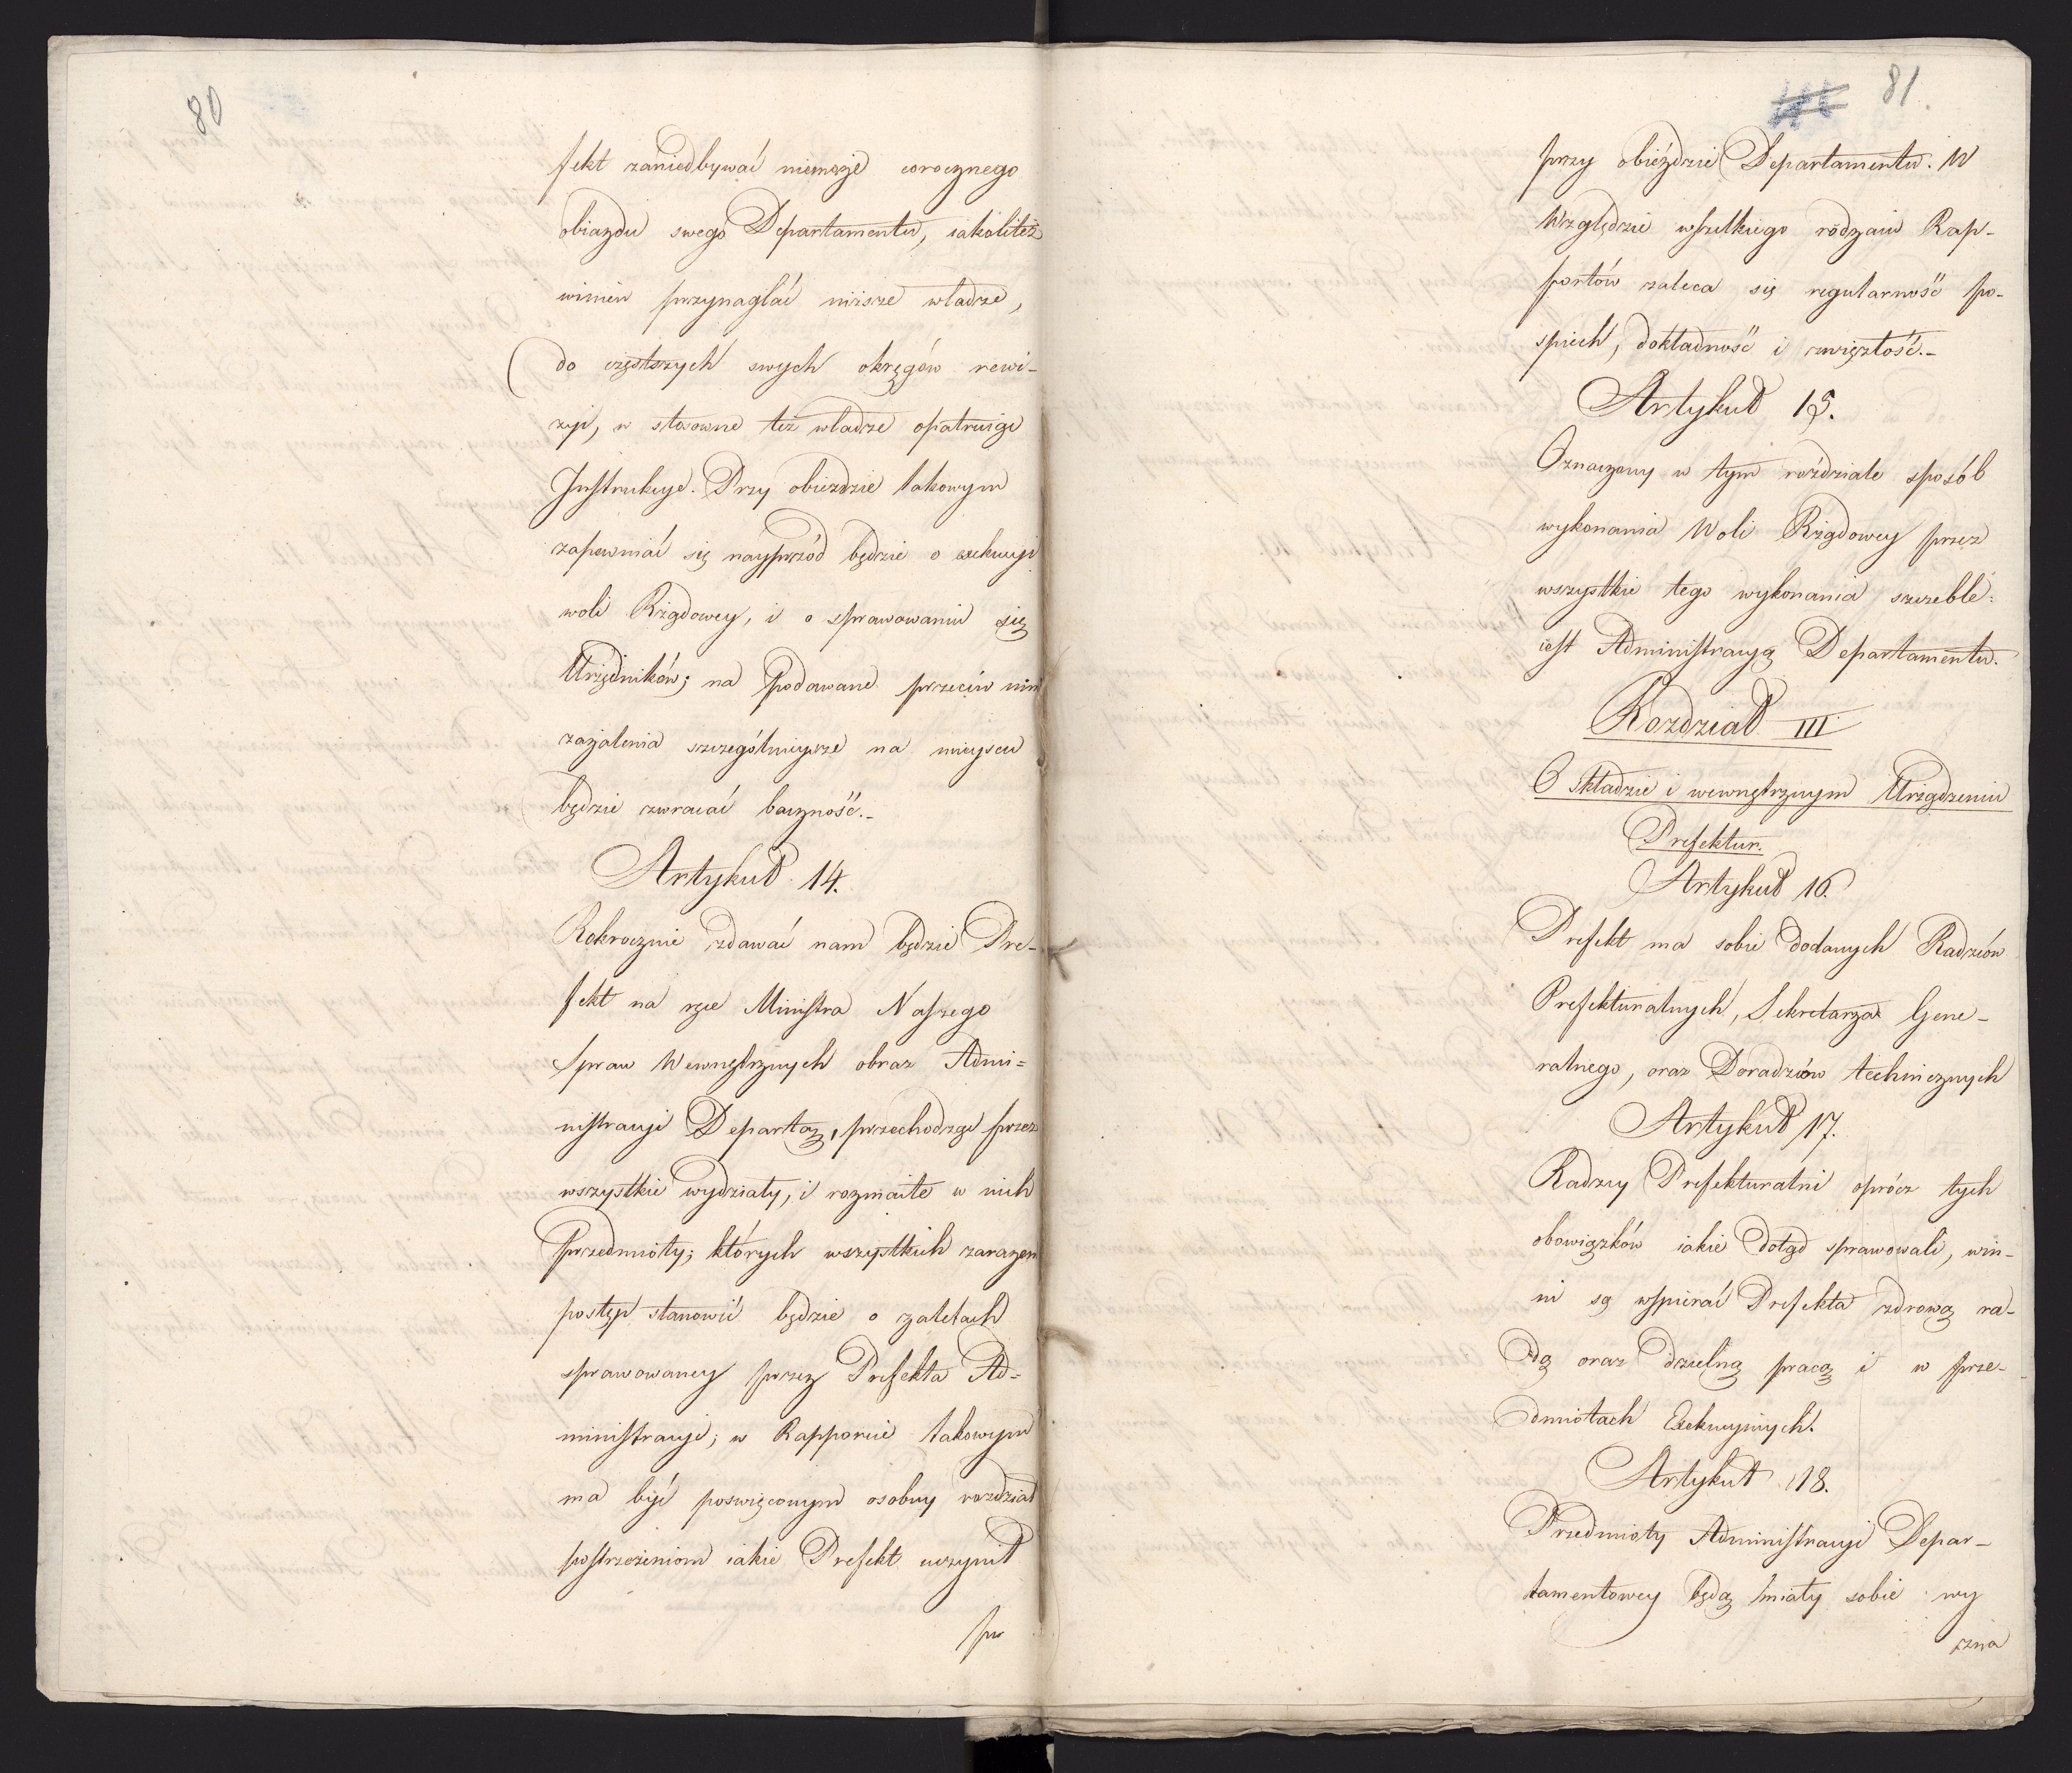 80
fekt zaniedbywać niemoże corocznego
obiazdu swego Departamentu, iakoliteż
winien przynaglać niższe władze,
do częstszych swych okręgów rewi-
zyi, w stosowne też władze opatruiąc
Instrukcye. Przy obieździe takowym
zapewniać się nayprzód będzie o exekucyi
woli Rządowey, i o sprawowaniu się
Urzędników; na podawane przeciw nim
zażalenia szczególnieysze na mieyscu
będzie zwracać baczność.-
Artykuł 14.
Rokrocznie zdawać nam będzie Pre-
fekt na ręce Ministra Naszego
Spraw Wewnętrznych obraz Admi=
nistracyi Departa, przechodząc przez
wszystkie wydziały, i rozmaite w nich
przedmioty; których wszystkich zarazem
postęp stanowić będzie o zaletach
sprawowaney przez Prefekta Ad=
ministracyi; w Rapporcie takowym
ma być poswięconym osobny rozdział
postrzeżeniom iakie Prefekt uczynił
81.
przy obieździe Departamentu. W
Względzie wszelkiego rodzaiu Rap-
portów zaleca się regularność po-
spiech, dokładność i zwięzłość.-
Artykuł 15.
Oznaczony w tym roździale sposób
wykonania Woli Rządowey przez
wszystkie tego wykonania szczeble:
iest Administracyą Departamentu.
Rozdział III
O składzie i wewnętrznym Urządzeniu
Prefektur.
Artykuł 16.
Prefekt ma sobie dodanych Radzców
Prefekturalnych, Sekretarza Gene-
ralnego, oraz Doradzców technicznych
Artykuł 17.
Radzcy Prefekturalni oprócz tych
obowiązków iakie dotąd sprawowali, win-
ni są wspierać Prefekta zdrową ra-
dą oraz dzielną pracą i w prze-
dmiotach Exekucyinych.
Artykuł 18.
Przedmioty Administracyi Depar-
tamentowey będą miały sobie wy
zna